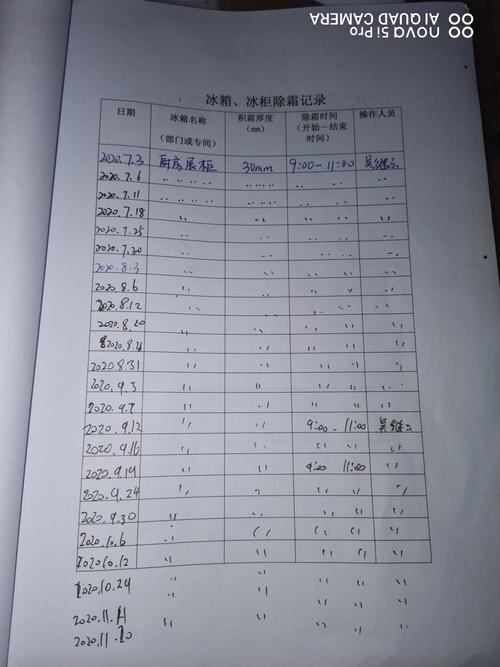 nova 5i Pro
AI QUAD CAMERA
冰箱、冰柜除霜记录
日期 冰箱名称（部门或专间） 积霜厚度（mm） 除霜时间（开始—结束时间） 操作人员
2020.7.3 厨房展柜 30mm 9:00-11:00 吴继云
2020.7.6 〃 〃 〃 〃
2020.7.11 〃 〃 〃 〃
2020.7.18 〃 〃 〃 〃
2020.7.25 〃 〃 〃 〃
2020.7.30 〃 〃 〃 〃
2020.8.3 〃 〃 〃 〃
2020.8.6 〃 〃 〃 〃
2020.8.12 〃 〃 〃 〃
2020.8.20 〃 〃 〃 〃
2020.8.26 〃 〃 〃 〃
2020.8.31 〃 〃 〃 〃
2020.9.3 〃 〃 〃 〃
2020.9.7 〃 〃 〃 〃
2020.9.12 〃 〃 9:00-11:00 吴继云
2020.9.16 〃 〃 〃 〃
2020.9.19 〃 〃 9:00 11:00 〃
2020.9.24 〃 〃 〃 〃
2020.9.30 〃 〃 〃 〃
2020.10.6 〃 〃 〃 〃
2020.10.12 〃 〃 〃 〃
2020.10.24 〃 〃 〃 〃
2020.11.11 〃 〃 〃 〃
2020.11.20 〃 〃 〃 〃